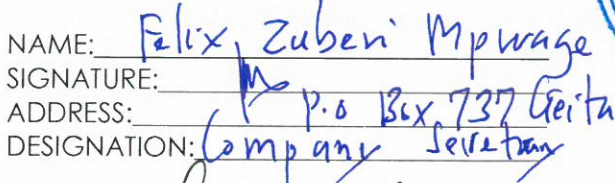 NAME: Felix Zuberi Mpwage
SIGNATURE:
ADDRESS: P.O Box 737 Geita
DESIGNATION: Company Secretary